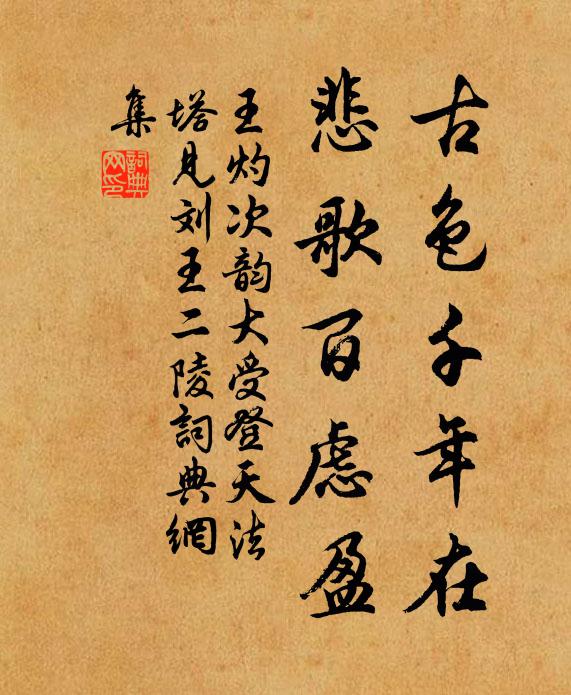 古色千年在
悲歌百虑盈
王灼次韵大受登天法
塔見刘王二陵詞典網
集
詞典
网印